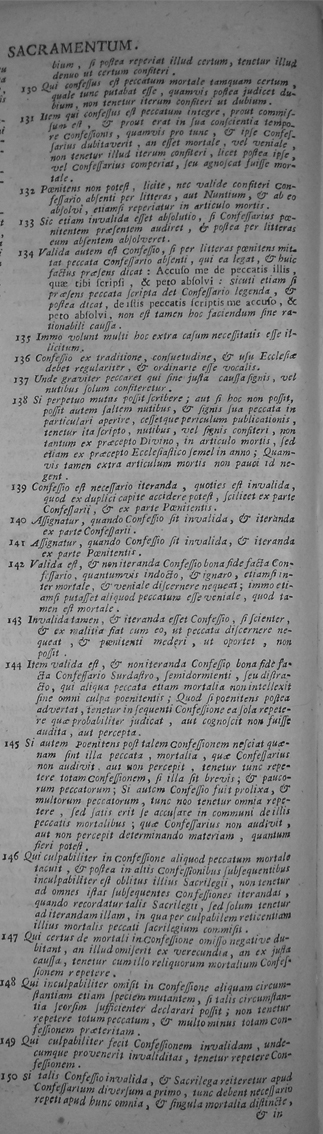 SACRAMENTUM.
bium, si postea reperiat illud certum, tenetur illud
denuo ut certum confiteri.
130 Qui confessus est peccatum mortale tamquam certum,
quale tunc putabat esse, quamvis postea judicet du-
bium, non tenetur iterum confiteri ut dubium.
131 Item qui confessus est peccatum integre, prout commis-
sum est, & prout erat in sua conscientia tempo-
re Confessionis, quamvis pro tunc, & ipse Confes-
sarius dubitaverit, an esset mortale, vel veniale,
non tenetur illud iterum confiteri, licet postea ipse,
vel Confessarius comperiat, seu agnoscat fuisse mor-
tale.
132 Pœnitens non potest, licite, nec valide confiteri Con-
fessario absenti per litteras, aut Nuntium, & ab eo
absolvi, etiamsi reperiatur in articulo mortis.
133 Sic etiam invalida esset absolutio, si Confessarius pœ-
nitentem præsentem audiret, & postea per litteras
eum absentem absolveret.
134 Valida autem est confessio, si per litteras pœnitens mit-
tat peccata Confessario absenti, qui ea legat, & huic
factus præsens dicat: Accuso me de peccatis illis,
quæ tibi scripsi, & peto absolvi: sicuti etiam si
præsens peccata scripta det Confessario legenda, &
postea dicat, de illis peccatis scriptis me accuso, &
peto absolvi, non est tamen hoc faciendum sine ra-
tionabili caussa.
135 Immo volunt multi hoc extra casum necessitatis esse il-
licitum.
136 Confessio ex traditione, consuetudine, & usu Ecclesiæ
debet regulariter, & ordinarie esse vocalis.
137 Unde graviter peccaret qui sine justa caussa signis, vel
nutibus solum confiteretur.
138 Si perpetuo mutus possit scribere; aut si hoc non possit,
possit autem saltem nutibus, & signis sua peccata in
particulari aperire, cessetque periculum publicationis,
tenetur ita scripto, nutibus, vel signis confiteri, non
tantum ex præcepto Divino, in articulo mortis, sed
etiam ex præcepto Ecclesiastico semel in anno; Quam-
vis tamen extra articulum mortis non pauci id ne-
gent.
139 Confessio est necessario iteranda, quoties est invalida,
quod ex duplici capite accidere potest, scilicet ex parte
Confessarii, & ex parte Pœnitentis.
140 Assignatur, quando Confessio sit invalida, & iteranda
ex parte Confessarii.
141 Assignatur, quando Confessio sit invalida, & iteranda
ex parte Pœnitentis.
142 Valida est, & non iteranda Confessio bona fide facta Con-
fessario, quantumvis indocto, & ignaro, etiamsi in-
ter mortale, & veniale discernere nequeat; immo eti-
amsi putasset aliquod peccatum esse veniale, quod ta-
men est mortale.
143 Invalida tamen, & iteranda esset Confessio, si scienter,
& ex malitia fiat cum eo, ut peccata discernere ne-
queat, & pœnitenti mederi, ut oportet, non
possit.
144 Item valida est, & non iteranda Confessio bona fide fa-
cta Confessario Surdastro, semidormienti, seu distra-
cto, qui aliqua peccata etiam mortalia non intellexit
sine omni culpa pœnitentis; Quod si pœnitens postea
advertat, tenetur in sequenti Confessione ea sola repete-
re quæ probabiliter judicat, aut cognoscit non fuisse
audita, aut percepta.
145 Si autem pœnitens post talem Confessionem nesciat quæ-
nam sint illa peccata, mortalia, quæ Confessarius
non audivit, aut non percepit, tenetur tunc repe-
tere totam Confessionem, si illa sit brevis; & pauco-
rum peccatorum; Si autem Confessio fuit prolixa, &
multorum peccatorum, tunc non tenetur omnia repe-
tere, sed satis erit se accusare in communi de illis
peccatis mortalibus; quæ Confessarius non audivit,
aut non percepit determinando materiam, quantum
fieri potest.
146 Qui culpabiliter in Confessione aliquod peccatum mortale
tacuit, & postea in aliis Confessionibus subsequentibus
inculpabiliter est oblitus illius Sacrilegii, non tenetur
ad omnes istas subsequentes Confessiones iterandas,
quando recordatur talis Sacrilegii, sed solum tenetur
ad iterandam illam, in qua per culpabilem reticentiam
illius mortalis peccati sacrilegium commisit.
147 Qui certus de mortali in Confessione omisso negative du-
bitant, an illud omiserit ex verecundia, an ex justa
caussa, tenetur cum illo reliquorum mortalium Confes-
sionem repetere.
148 Qui inculpabiliter omisit in Confessione aliquam circum-
stantiam etiam speciem mutantem, si talis circumstan-
tia seorsim sufficienter declarari possit; non tenetur
repetere totum peccatum, & multo minus totam Con-
fessionem præteritam.
149 Qui culpabiliter fecit Confessionem invalidam, unde-
cumque provenerit invaliditas, tenetur repetere Con-
fessionem.
150 Si talis Confessio invalida, & Sacrilega reiteretur apud
Confessarium diversum a primo, tunc debent necessario
repeti apud hunc omnia, & singula mortalia distincte,
& in